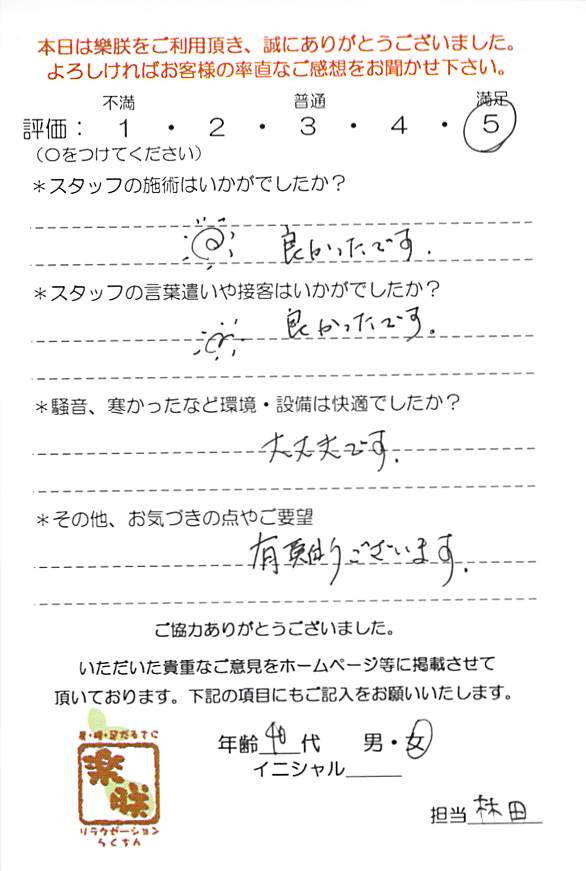 本日は樂朕をご利用頂き、誠にありがとうございました。
よろしければお客様の率直なご感想をお聞かせ下さい。
不満 普通 満足
評価： 1 ・ 2 ・ 3 ・ 4 ・ 5
（○をつけてください）
＊スタッフの施術はいかがでしたか？
良かったです.
＊スタッフの言葉遣いや接客はいかがでしたか？
良かったです。
＊騒音、寒かったなど環境・設備は快適でしたか？
大丈夫です.
＊その他、お気づきの点やご要望
有難うございます.
ご協力ありがとうございました。
いただいた貴重なご意見をホームページ等に掲載させて
頂いております。下記の項目にもご記入をお願いいたします。
年齢 40 代 男・女
イニシャル
樂朕
リラクゼーション
らくちん
担当 林田